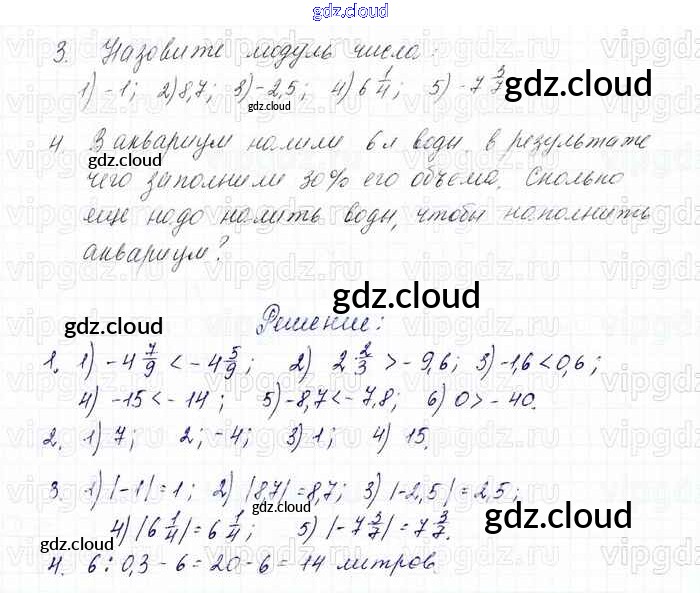 gdz.cloud
3. Назовите модуль числа:
1) -1; 2) 8,7; 3) -2,5; 4) 6 1/4; 5) -7 3/7
4 В аквариум налили 6 л воды, в результате
чего заполнили 30% его объема. Сколько
еще надо налить воды, чтобы наполнить
аквариум?
Решение:
1. 1) -4 7/9 < -4 5/9; 2) 2 2/3 > -9,6; 3) -1,6 < 0,6;
4) -15 < -14; 5) -8,7 < -7,8; 6) 0 > -40.
2. 1) 7; 2; -4; 3) 1; 4) 15.
3. 1) |-1| = 1; 2) |8,7| = 8,7; 3) |-2,5| = 2,5;
4) |6 1/4| = 6 1/4; 5) |-7 3/7| = 7 3/7.
4. 6 : 0,3 - 6 = 20 - 6 = 14 литров